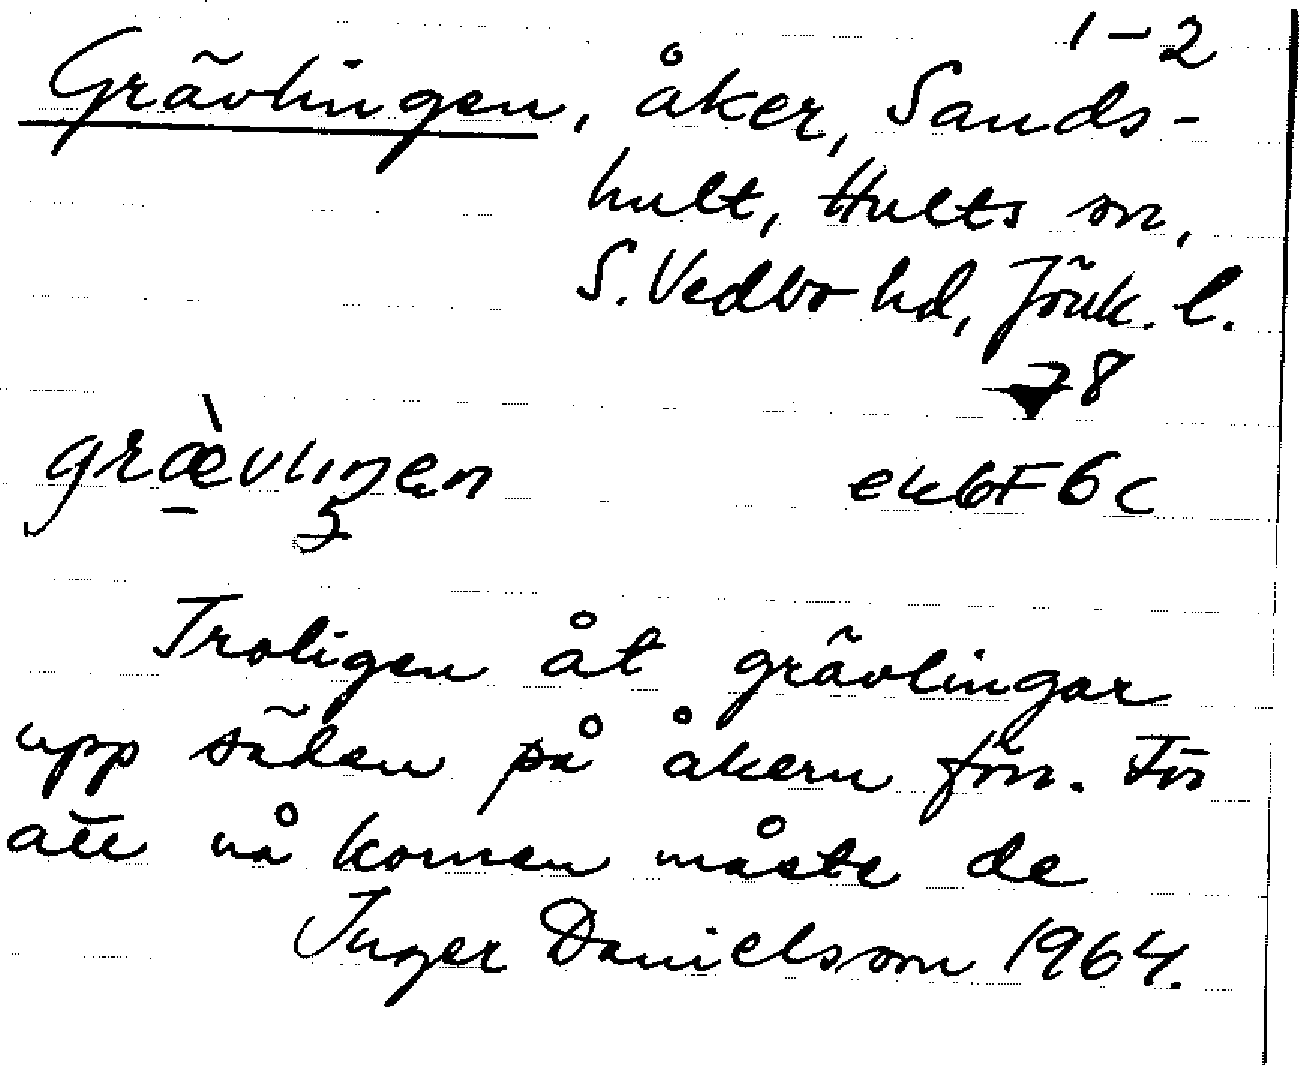 1-2
Grävlingen, åker, Sands-
hult, Hults sn,
S. Vedbo hd, Jönk. l.
78
ekbF6c
Troligen åt grävlingar
upp säden på åkern förr. För
att nå kornen måste de
Inger Danielsson 1964.